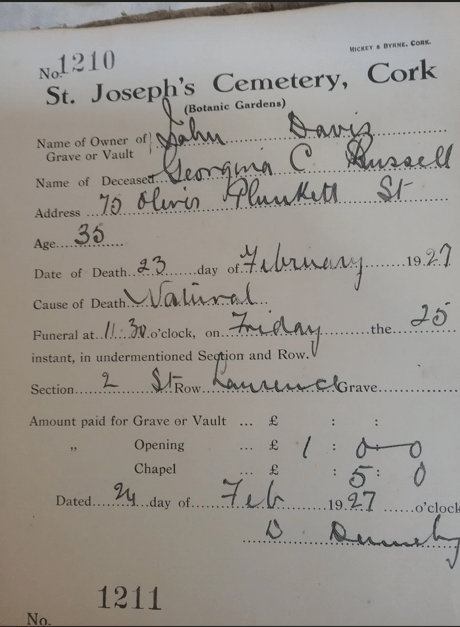 HICKEY & BYRNE, CORK.
No. 1210
St. Joseph's Cemetery, Cork
(Botanic Gardens)
Name of Owner of Grave or Vault } John Davis
Name of Deceased Georgina C Russell
Address 75 Oliver Plunkett St
Age 35
Date of Death 23 day of February 1927
Cause of Death Natural
Funeral at 11.30 o'clock, on Friday the 25
instant, in undermentioned Section and Row.
Section 2 St Row Laurence Grave
Amount paid for Grave or Vault ... £ : :
„ Opening ... £ 1 : 0 — 0
Chapel ... £ : 5 : 0
Dated 24 day of Feb 1927 o'clock
D
1211
No.